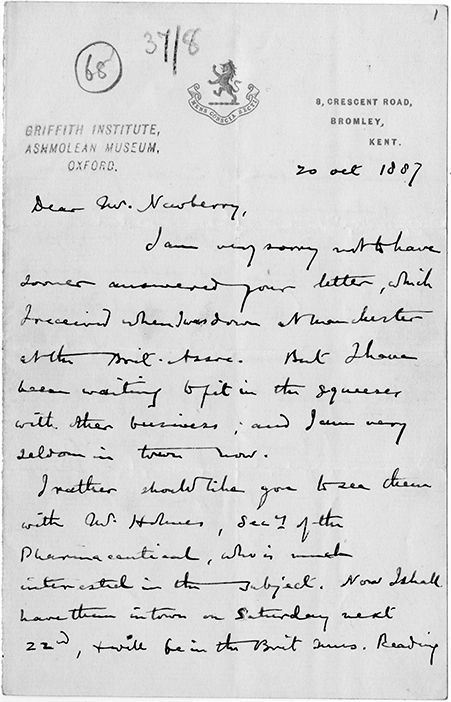 1
68
37/8
MENS CONSCIA RECTI
8, CRESCENT ROAD,
BROMLEY,
KENT.
GRIFFITH INSTITUTE,
ASHMOLEAN MUSEUM,
OXFORD.
20 Oct 1887
Dear Mr. Newberry,
I am very sorry not to have
sooner answered your letter, which
I received when I was down at Manchester
at the Brit. Assoc. But I have
been waiting to fit in the squeezes
with other business; and I am very
seldom in town now.
I rather should like you to see them
with Mr. Holmes, Secy of the
Pharmaceutical, who is much
interested in the subject. Now I shall
have them in town on Saturday next
22nd, & will be in the Brit Mus. Reading